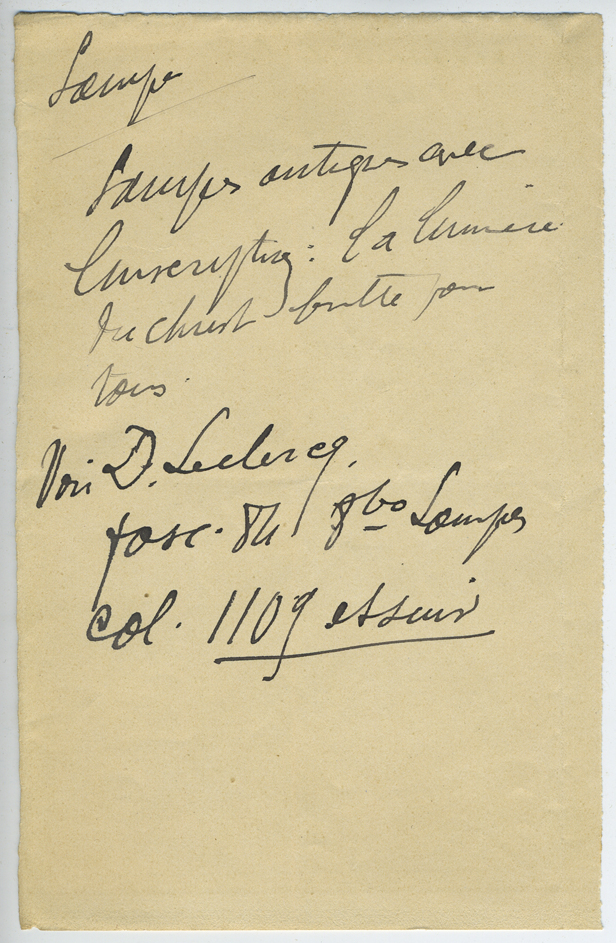 Lampe
Lampes antiques avec
l'inscription : la lumière
du Christ brille pour
tous.
Voir D. Leclercq,
fasc. 84 Vbo Lampes
col. 1109 et suiv